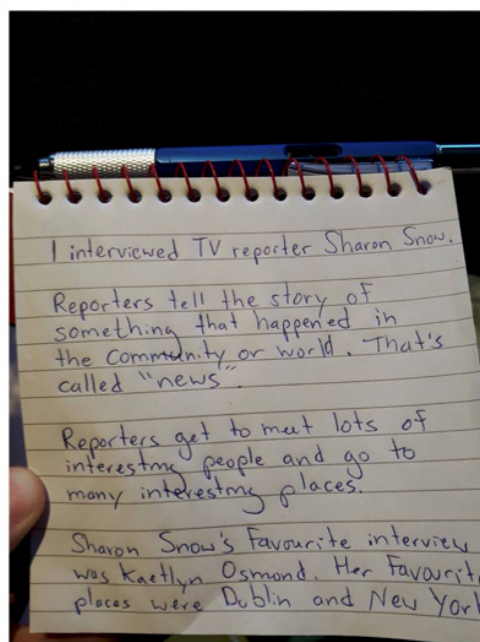 I interviewed TV reporter Sharon Snow.
Reporters tell the story of
something that happened in
the community or world. That's
called "news".
Reporters get to meet lots of
interesting people and go to
many interesting places.
Sharon Snow's Favourite interview
was Kaetlyn Osmond. Her Favourit
places were Dublin and New York